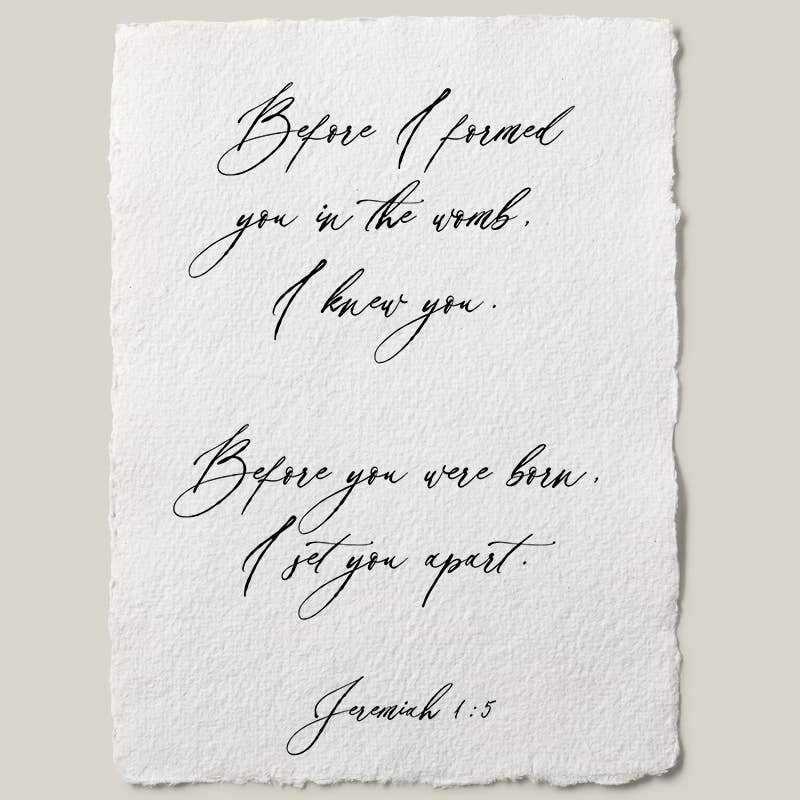 Before I formed
you in the womb,
I knew you.
Before you were born,
I set you apart.
Jeremiah 1:5